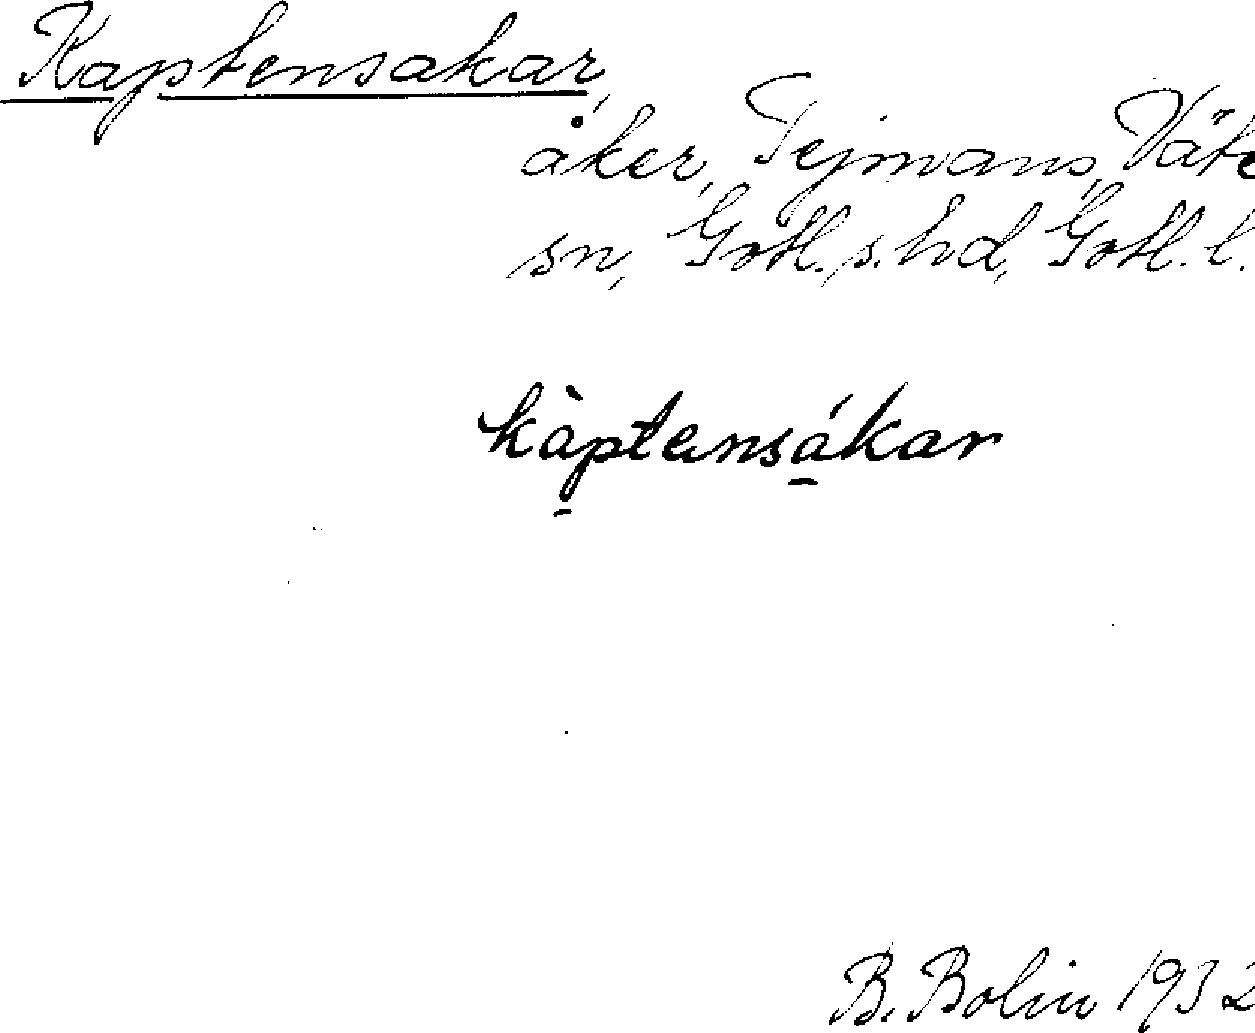 Kaptensakar,
åker, Tejmans, Väte
sn, Gotl. s. hd, Gotl. l.
kàptensákar
B. Bolin 1932